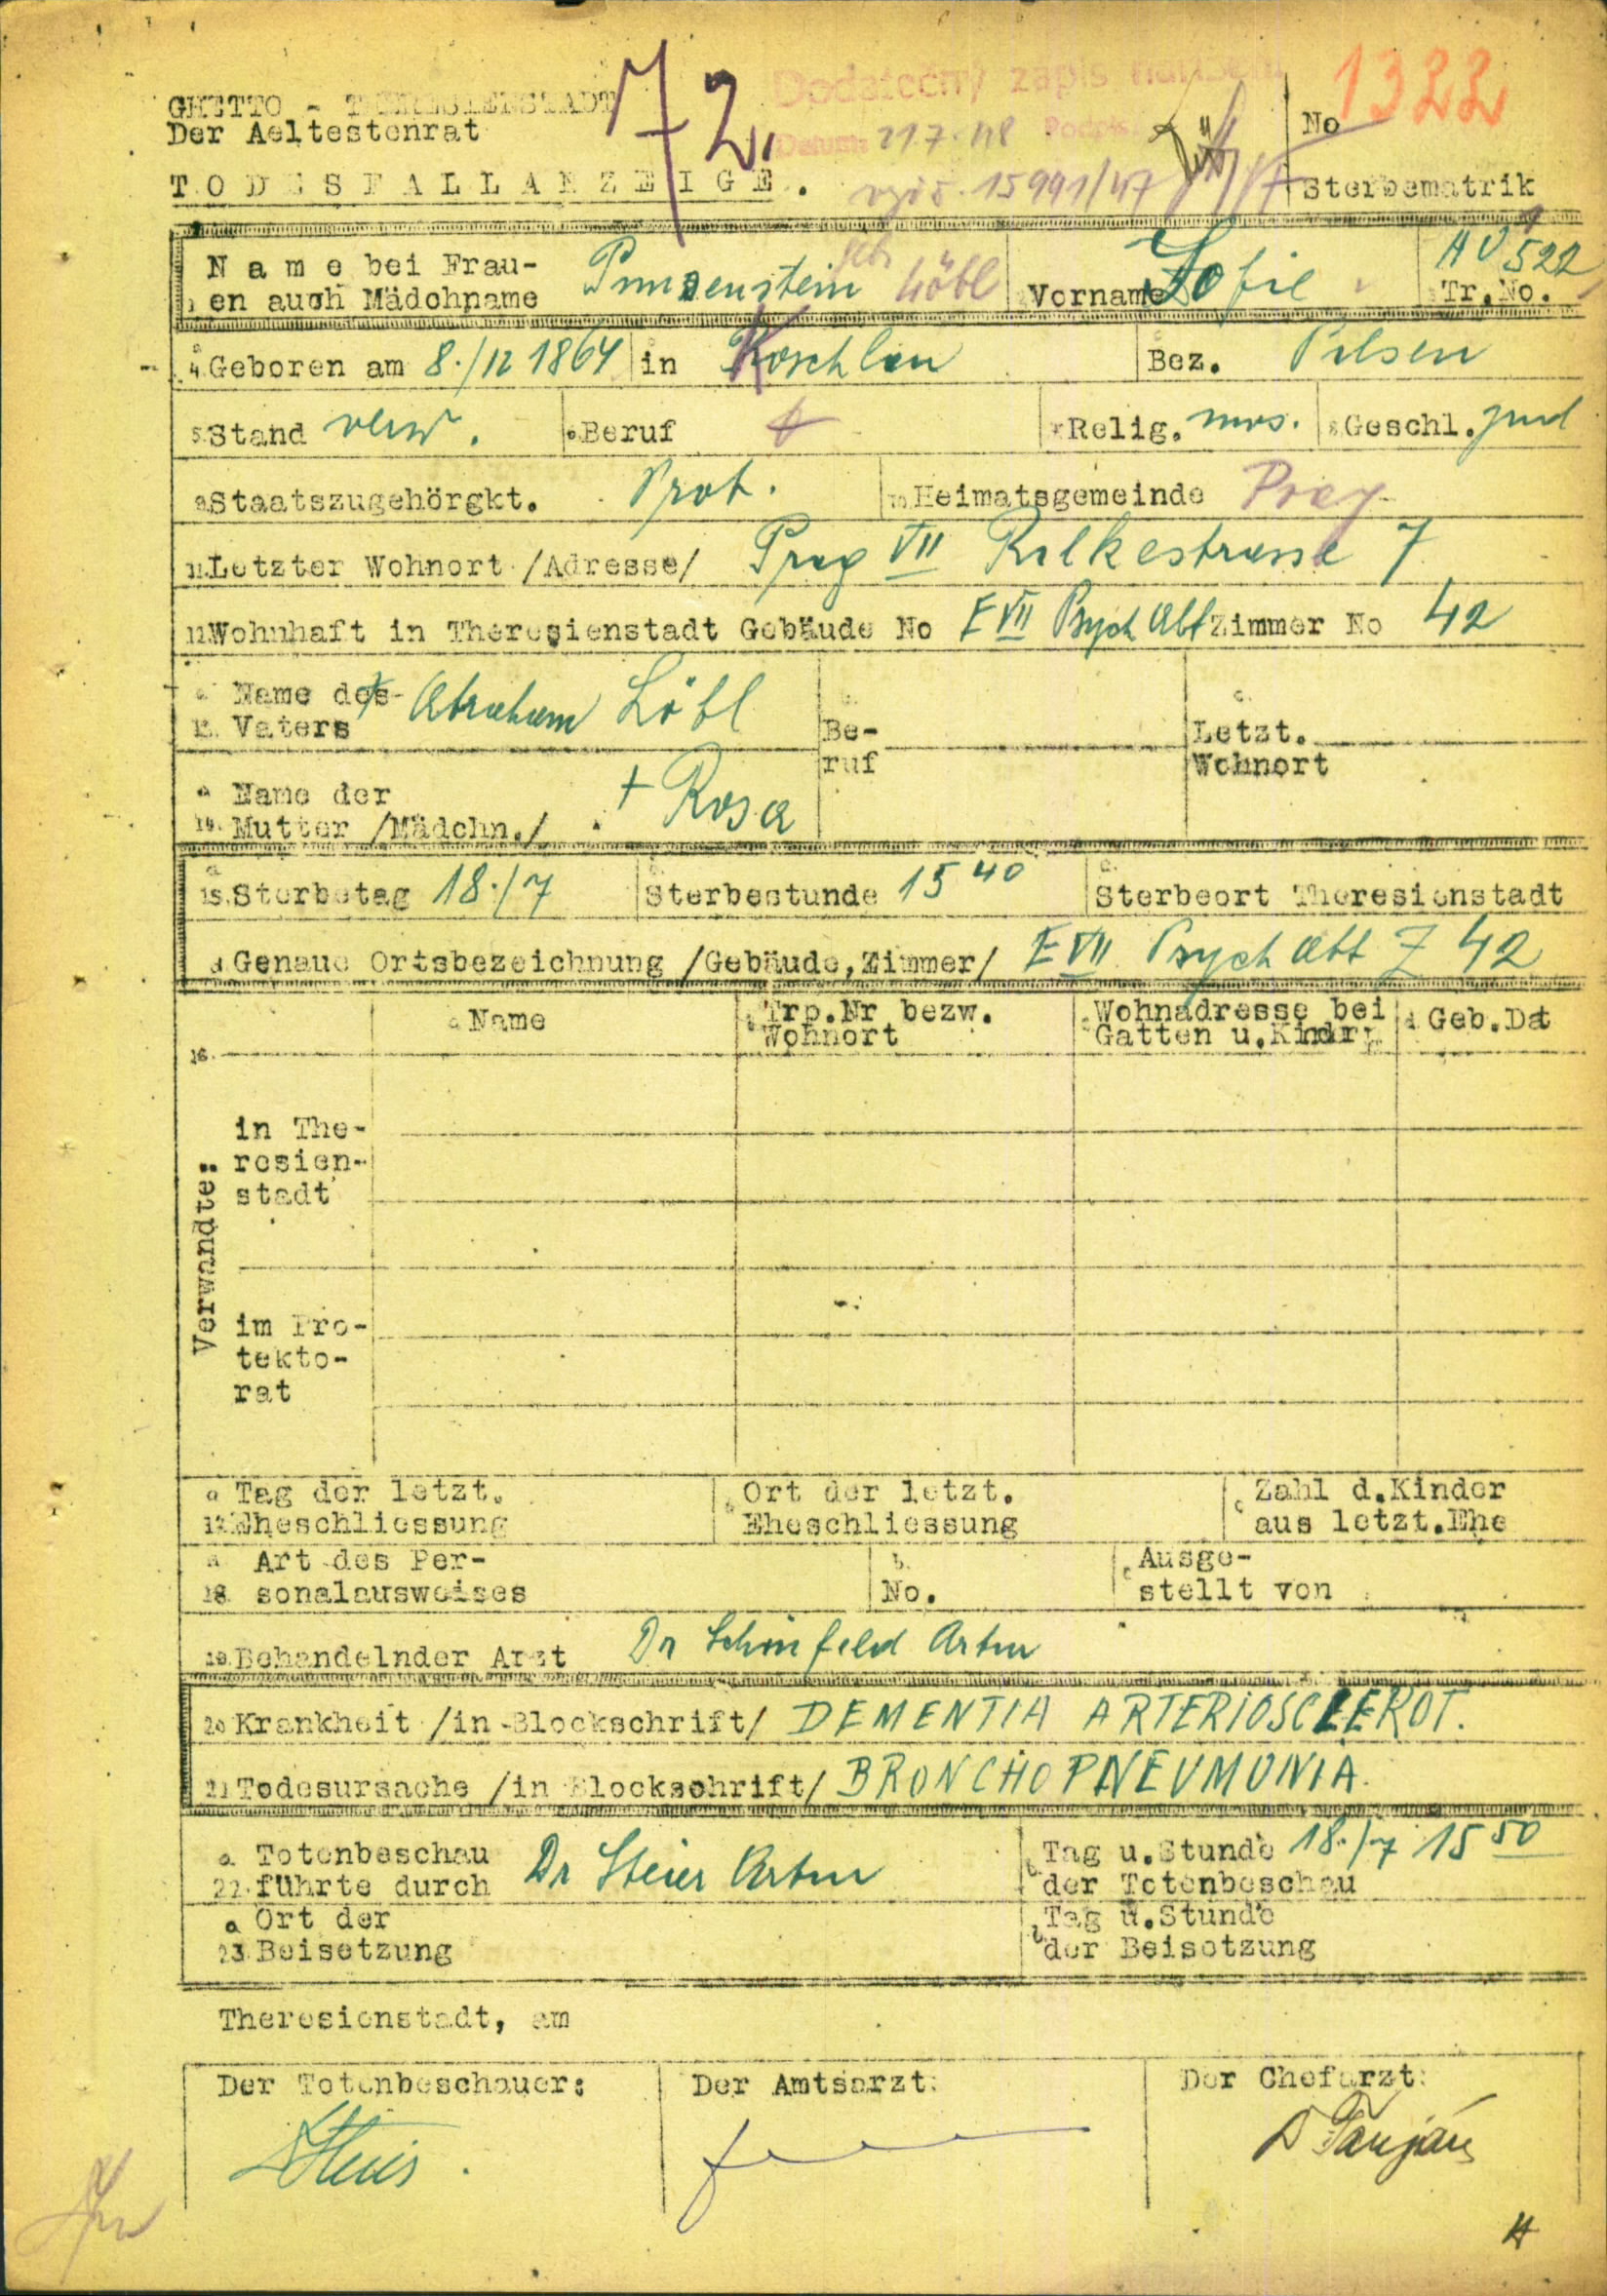 GHETTO - THERESIENSTADT
Der Aeltestenrat
72.
Dodatečný zápis
Datum: 21.7.48 Podpis:
15991/47
No 1322
Sterbematrik
TODESFALLANZEIGE.
Name bei Frau-
en auch Mädchname
geb. Löbl
Vorname Sofie
AV 522
Tr.No.
Geboren am 8./12 1864 in Koschlan Bez. Pilsen
Stand verw. Beruf Relig. mos. Geschl.
Staatszugehörgkt. Prot. Heimatsgemeinde Prag
11 Letzter Wohnort /Adresse/ Prag VII Rilkestrasse 7
Wohnhaft in Theresienstadt Gebäude No E VII Psych Abt Zimmer No 42
Name des
Vaters + Abraham Löbl
Be-
ruf
Letzt.
Wohnort
Name der
Mutter /Mädchn./ + Rosa
15. Sterbetag 18./7 Sterbestunde 15 40 Sterbeort Theresienstadt
d Genaue Ortsbezeichnung /Gebäude, Zimmer/ E VII Psych Abt Z 42
16.
Name
Trp.Nr bezw.
Wohnort
Wohnadresse bei
Gatten u.Kindr
Geb.Dat
Verwandte:
in The-
resien-
stadt
im Pro-
tekto-
rat
a Tag der letzt.
Eheschliessung
Ort der letzt.
Eheschliessung
c Zahl d.Kinder
aus letzt.Ehe
Art des Per-
18 sonalausweises
b.
No.
c Ausge-
stellt von
Behandelnder Arzt Dr Schönfeld Artur
20 Krankheit /in Blockschrift/ DEMENTIA ARTERIOSCLEROT.
21 Todesursache /in Blockschrift/ BRONCHOPNEUMONIA.
a. Totenbeschau
22. führte durch Dr Steier Artur
Tag u.Stunde
der Totenbeschau 18./7 15 50
a Ort der
23 Beisetzung
b Tag u.Stunde
der Beisetzung
Theresienstadt, am
Der Totenbeschauer:
Der Amtsarzt:
Der Chefarzt: